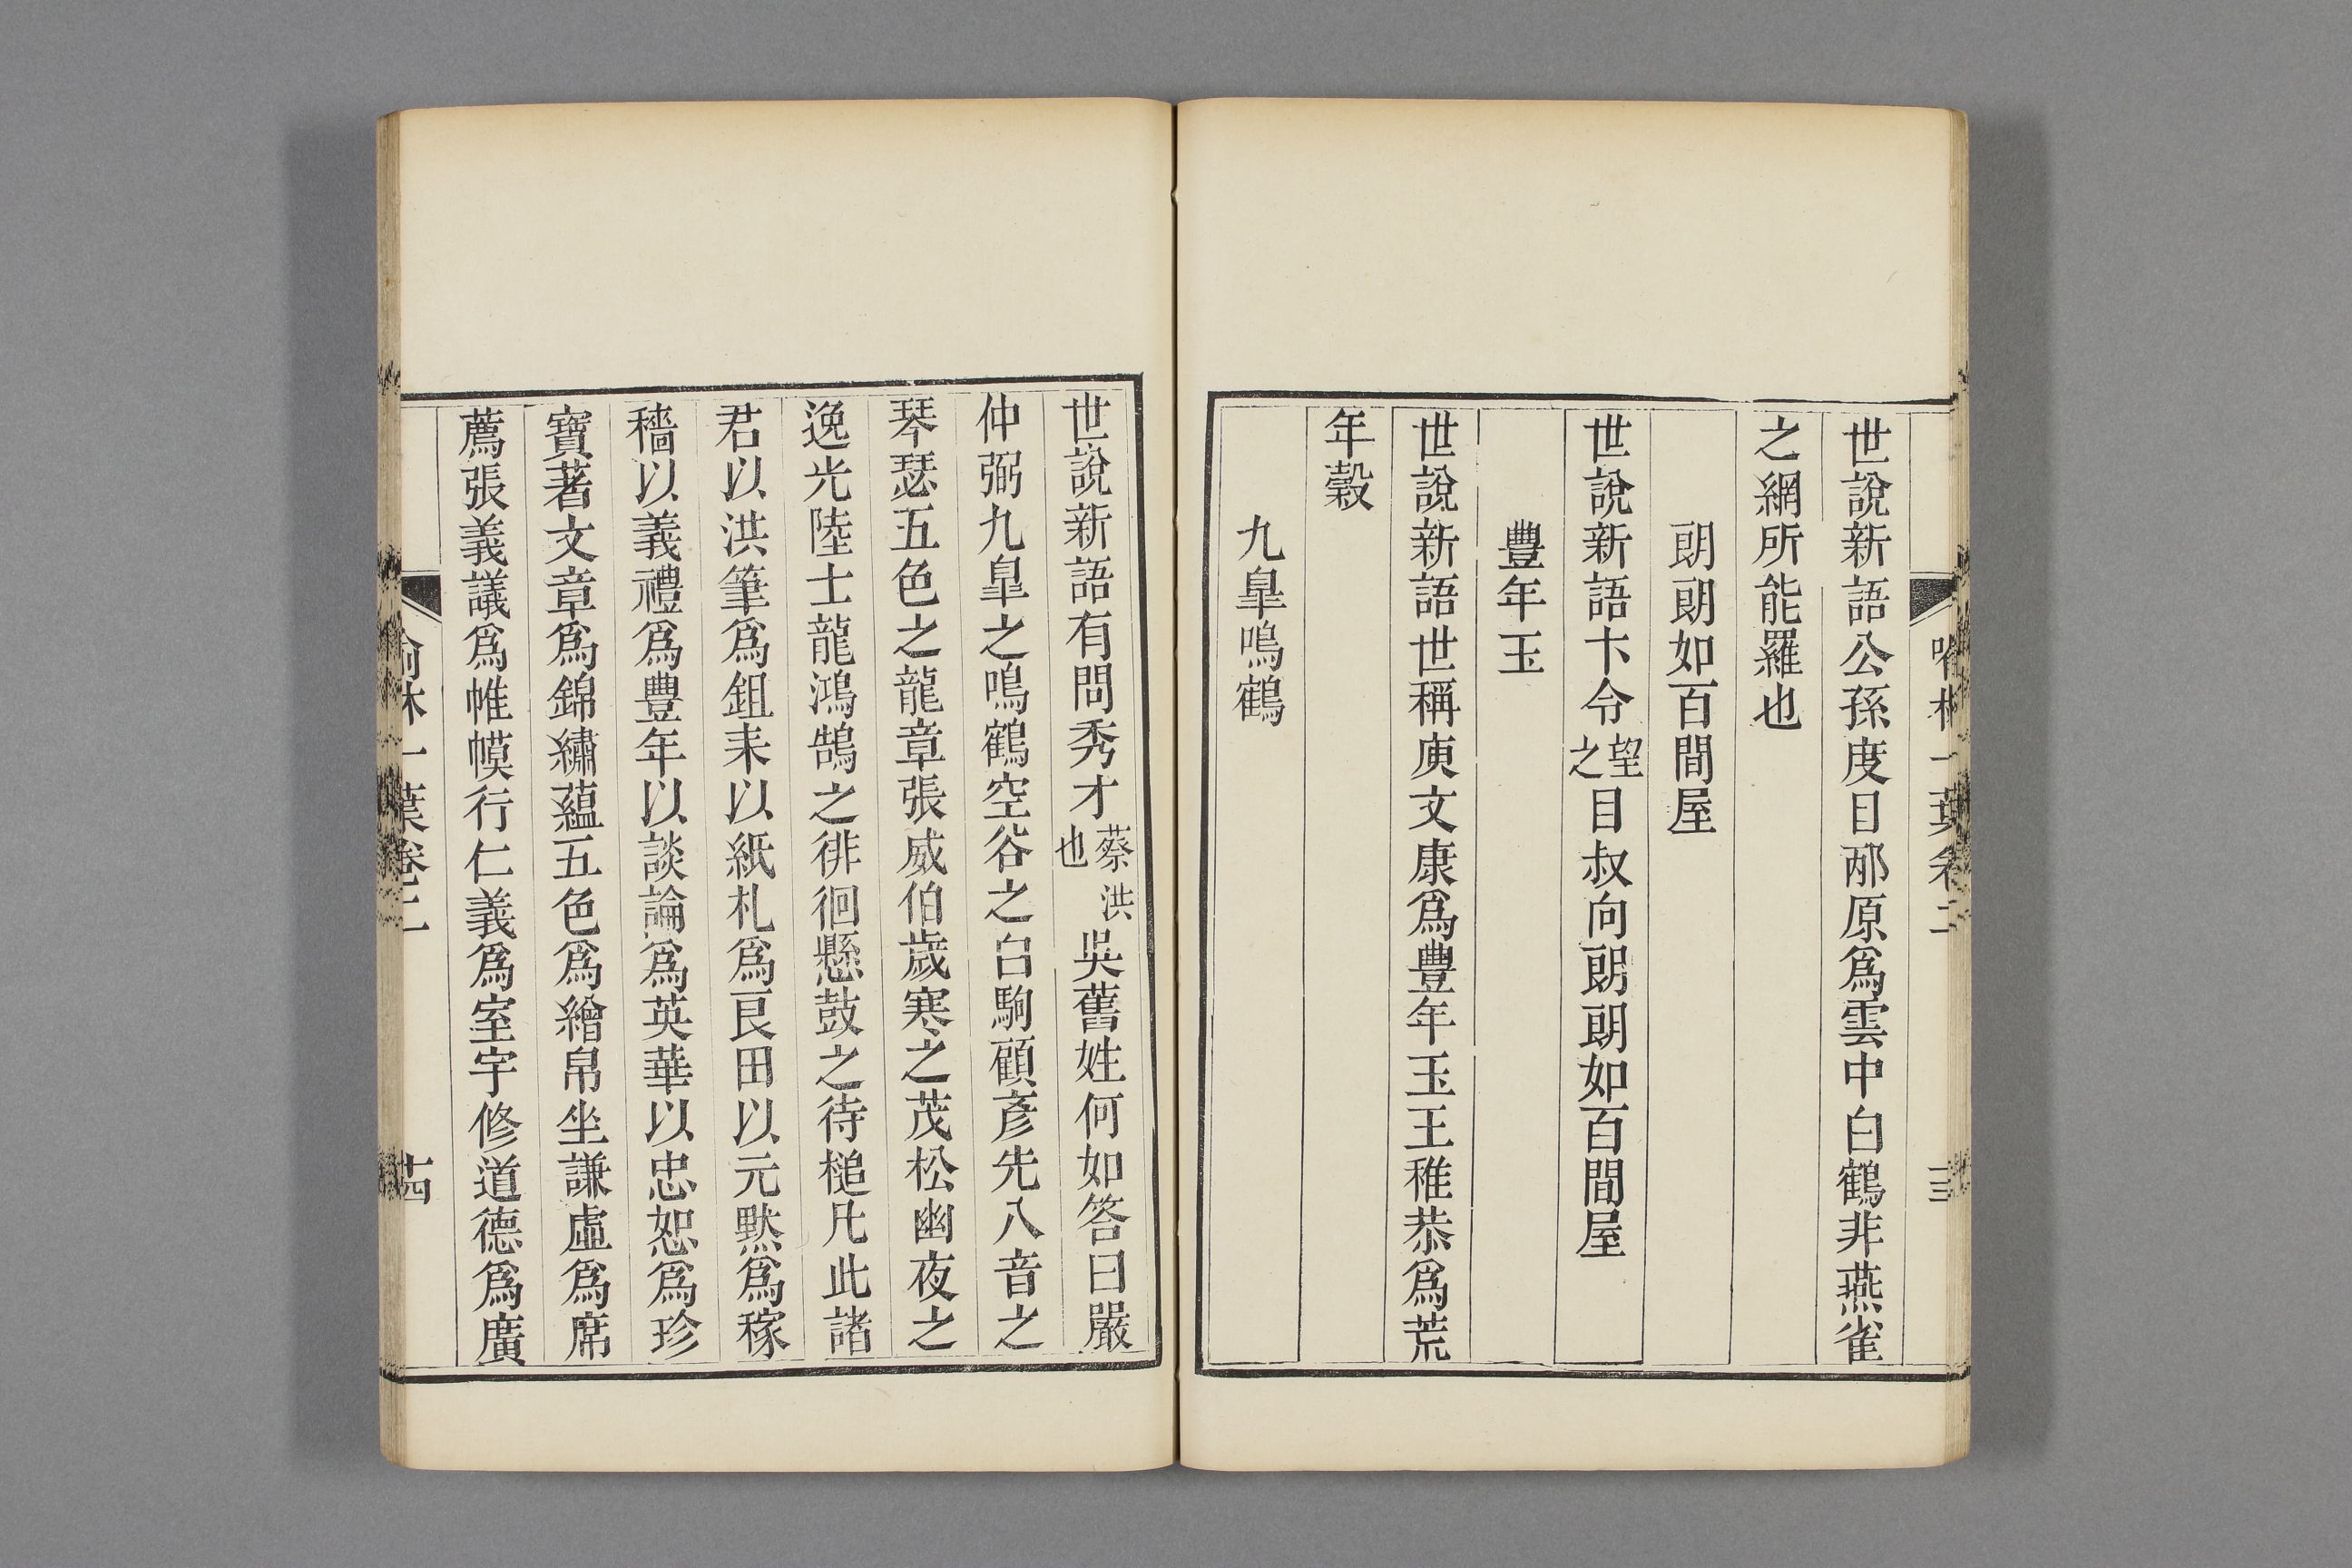 世說新語公孫度目邴原爲雲中白鶴非燕雀
之網所能羅也
朗朗如百間屋
世說新語卞令望之目叔向朗朗如百間屋
豐年玉
世說新語世稱庾文康爲豐年玉王稚恭爲荒
年穀
九臯鳴鶴
世說新語有問秀才蔡洪也吳舊姓何如答曰嚴
仲弼九臯之鳴鶴空谷之白駒顧彥先八音之
琴瑟五色之龍章張威伯歲寒之茂松幽夜之
逸光陸士龍鴻鵠之徘徊懸鼓之待槌凡此諸
君以洪筆爲鉏耒以紙札爲良田以元默爲稼
穡以義禮爲豐年以談論爲英華以忠恕爲珍
寶著文章爲錦繡蘊五色爲繒帛坐謙虛爲席
薦張義議爲帷幙行仁義爲室宇修道德爲廣
喻林一葉卷二
十四